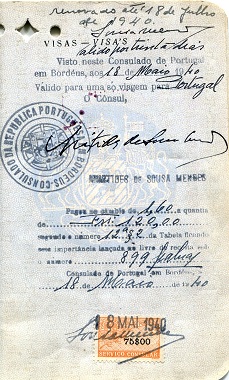 renovado até 18 de julho
de 1940.
Sousa Mendes
VISAS-VISA'S
Valido por trinta dias
Visto neste Consulado de Portugal
em Bordéus, aos 18 de Maio 1940
Valido para uma so viagem para Portugal
O Consul,
CONSULADO DA REPUBLICA PORTUGUESA
BORDEUS
ARISTIDES DE SOUSA MENDES
Pagou ao câmbio de 1,60 a quantia
de Esc: 120,00
segundo o número da Tabela ficando
sua importância lançada no livro de receita sob
o número 899
Consulado de Portugal em Bordéus,
18 de Maio de 1940
18 MAI 1940
75$00
SERVIÇO CONSULAR